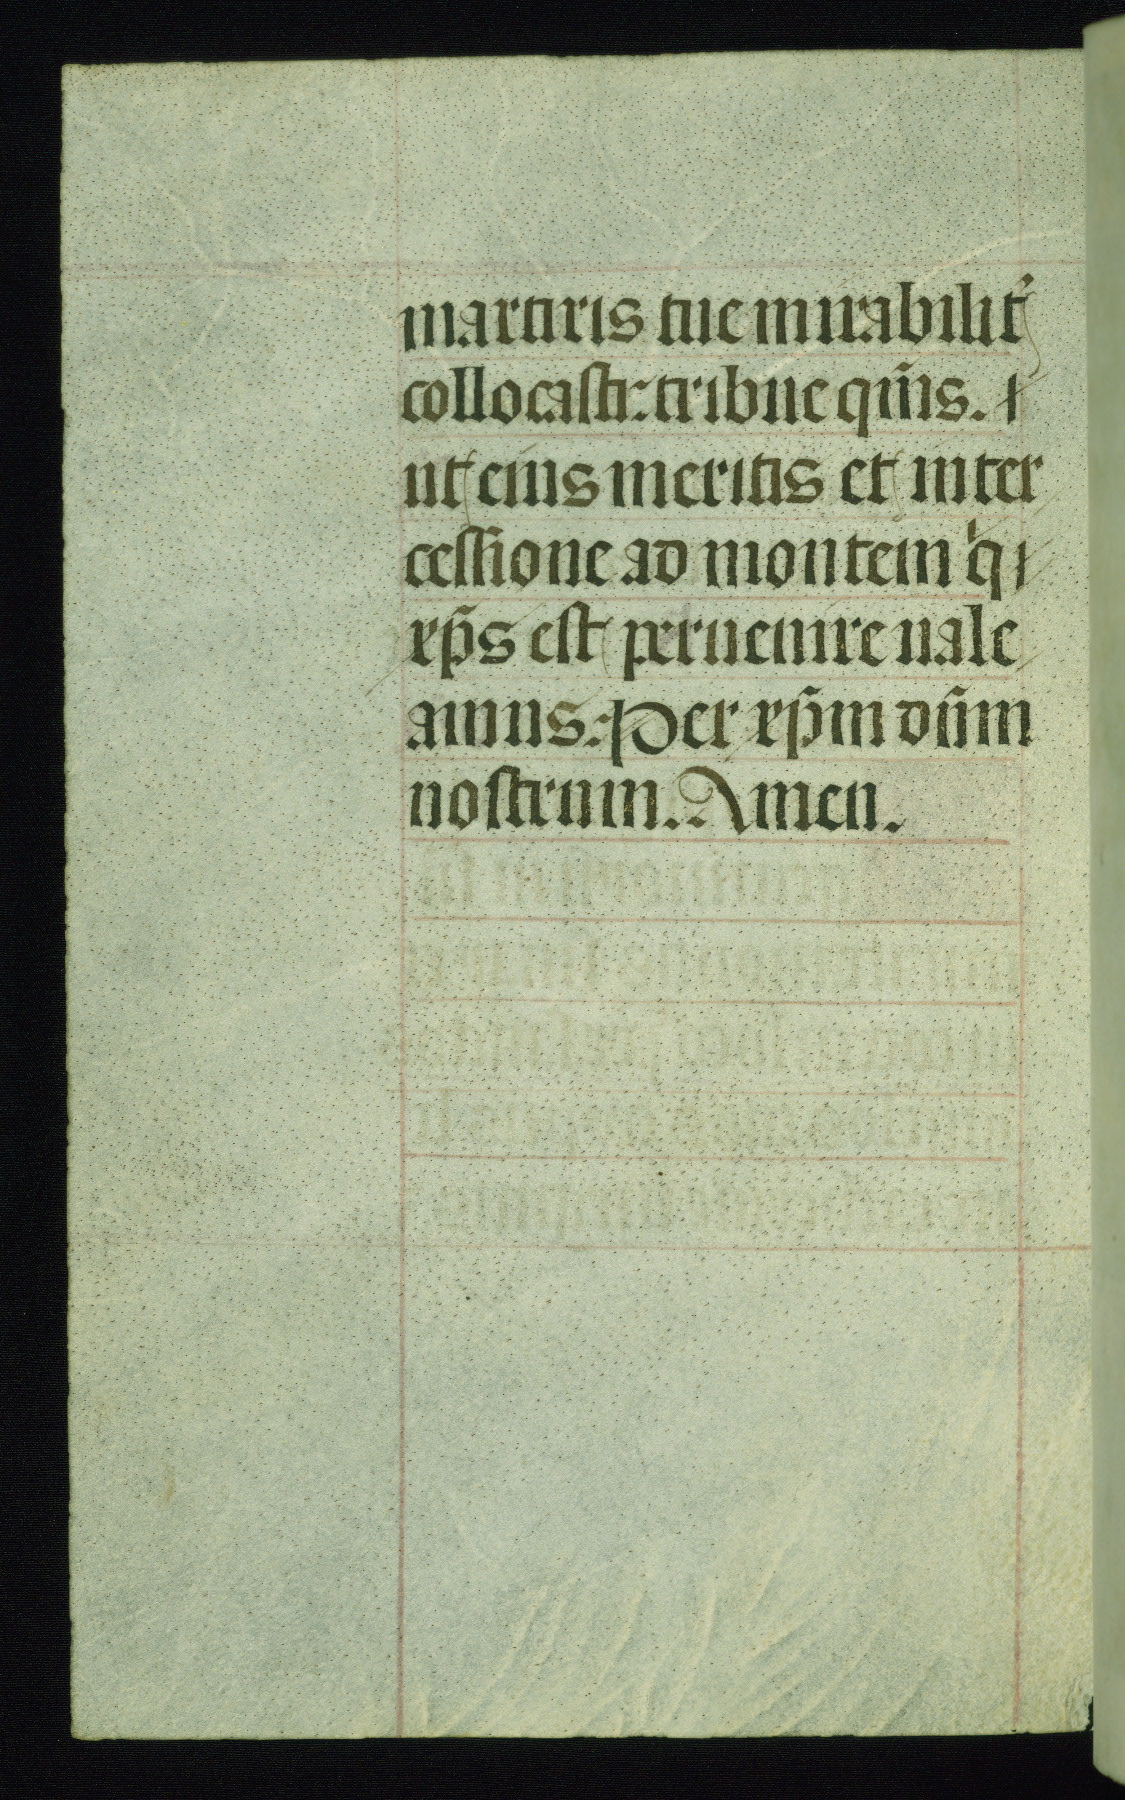 martiris tue mirabilit᷑
collocasti: tribue qu̅s.
ut eius meritis et inter
cessione ad montem qͥ
xp̅s est peruenire uale
amus: Per xp̅m dn̅m
nostrum. Amen.